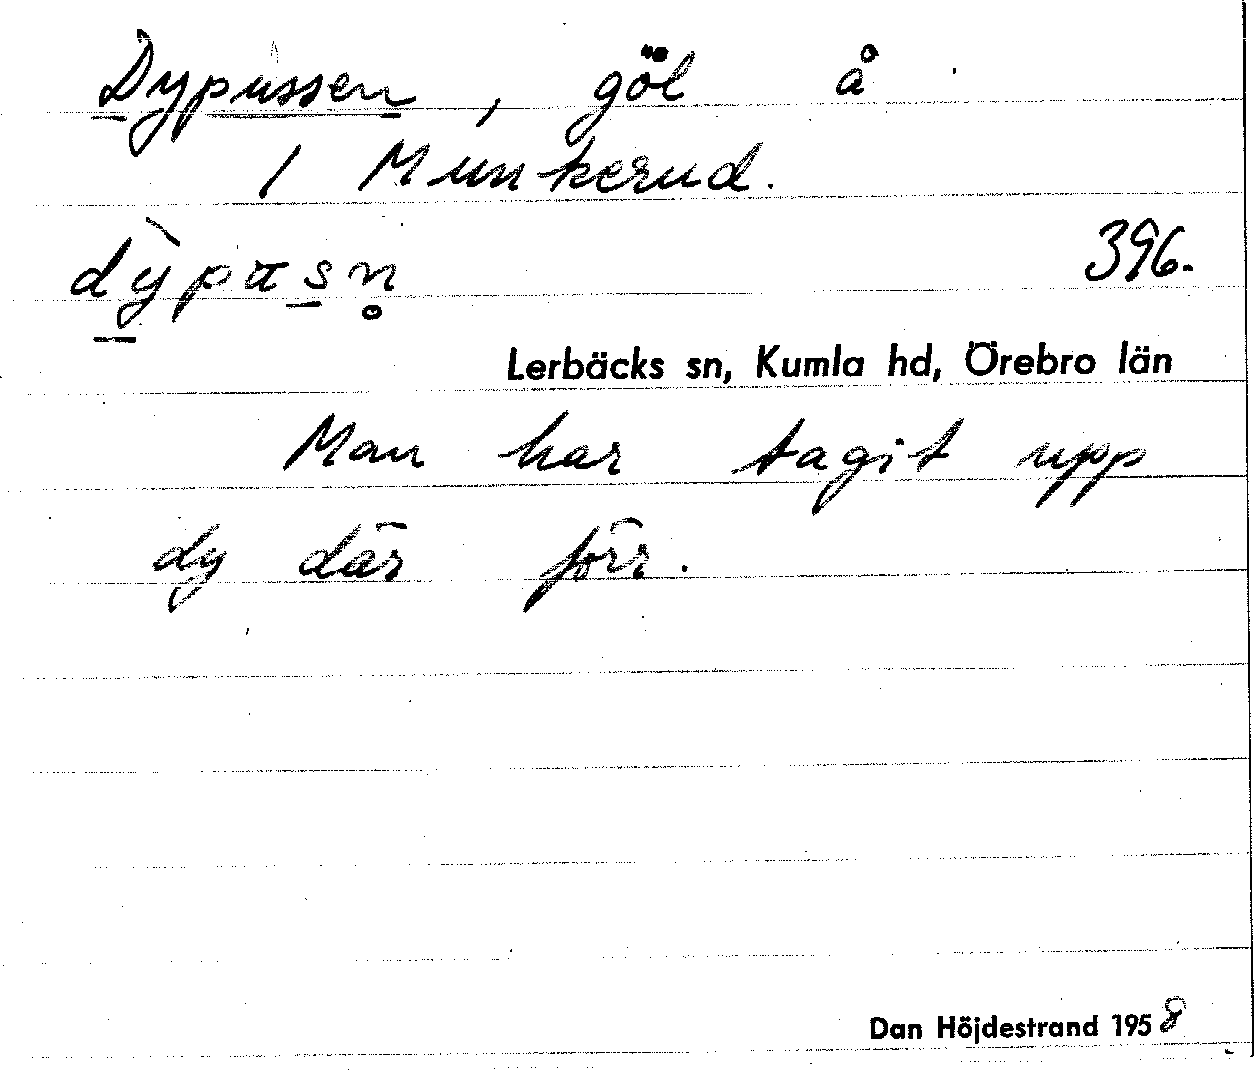 Dypussen, göl å
1 Munkerud.
dỳpusn̥
396.
Lerbäcks sn, Kumla hd, Örebro län
Man har tagit upp
dy där förr.
Dan Höjdestrand 1958